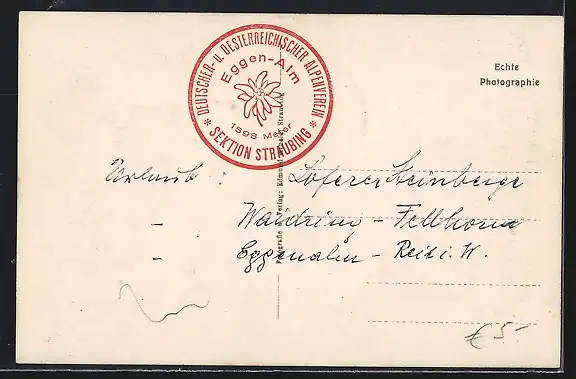 DEUTSCHER- U. OESTERREICHISCHER ALPENVEREIN
Eggen-Alm
1598 Meter
* SEKTION STRAUBING *
Echte
Photographie
Verlag:
Straubing
Urlaub : Loferer Steinberge
– Waidring – Fellhorn
– Eggenalm – Reit i. W.
€ 5.-